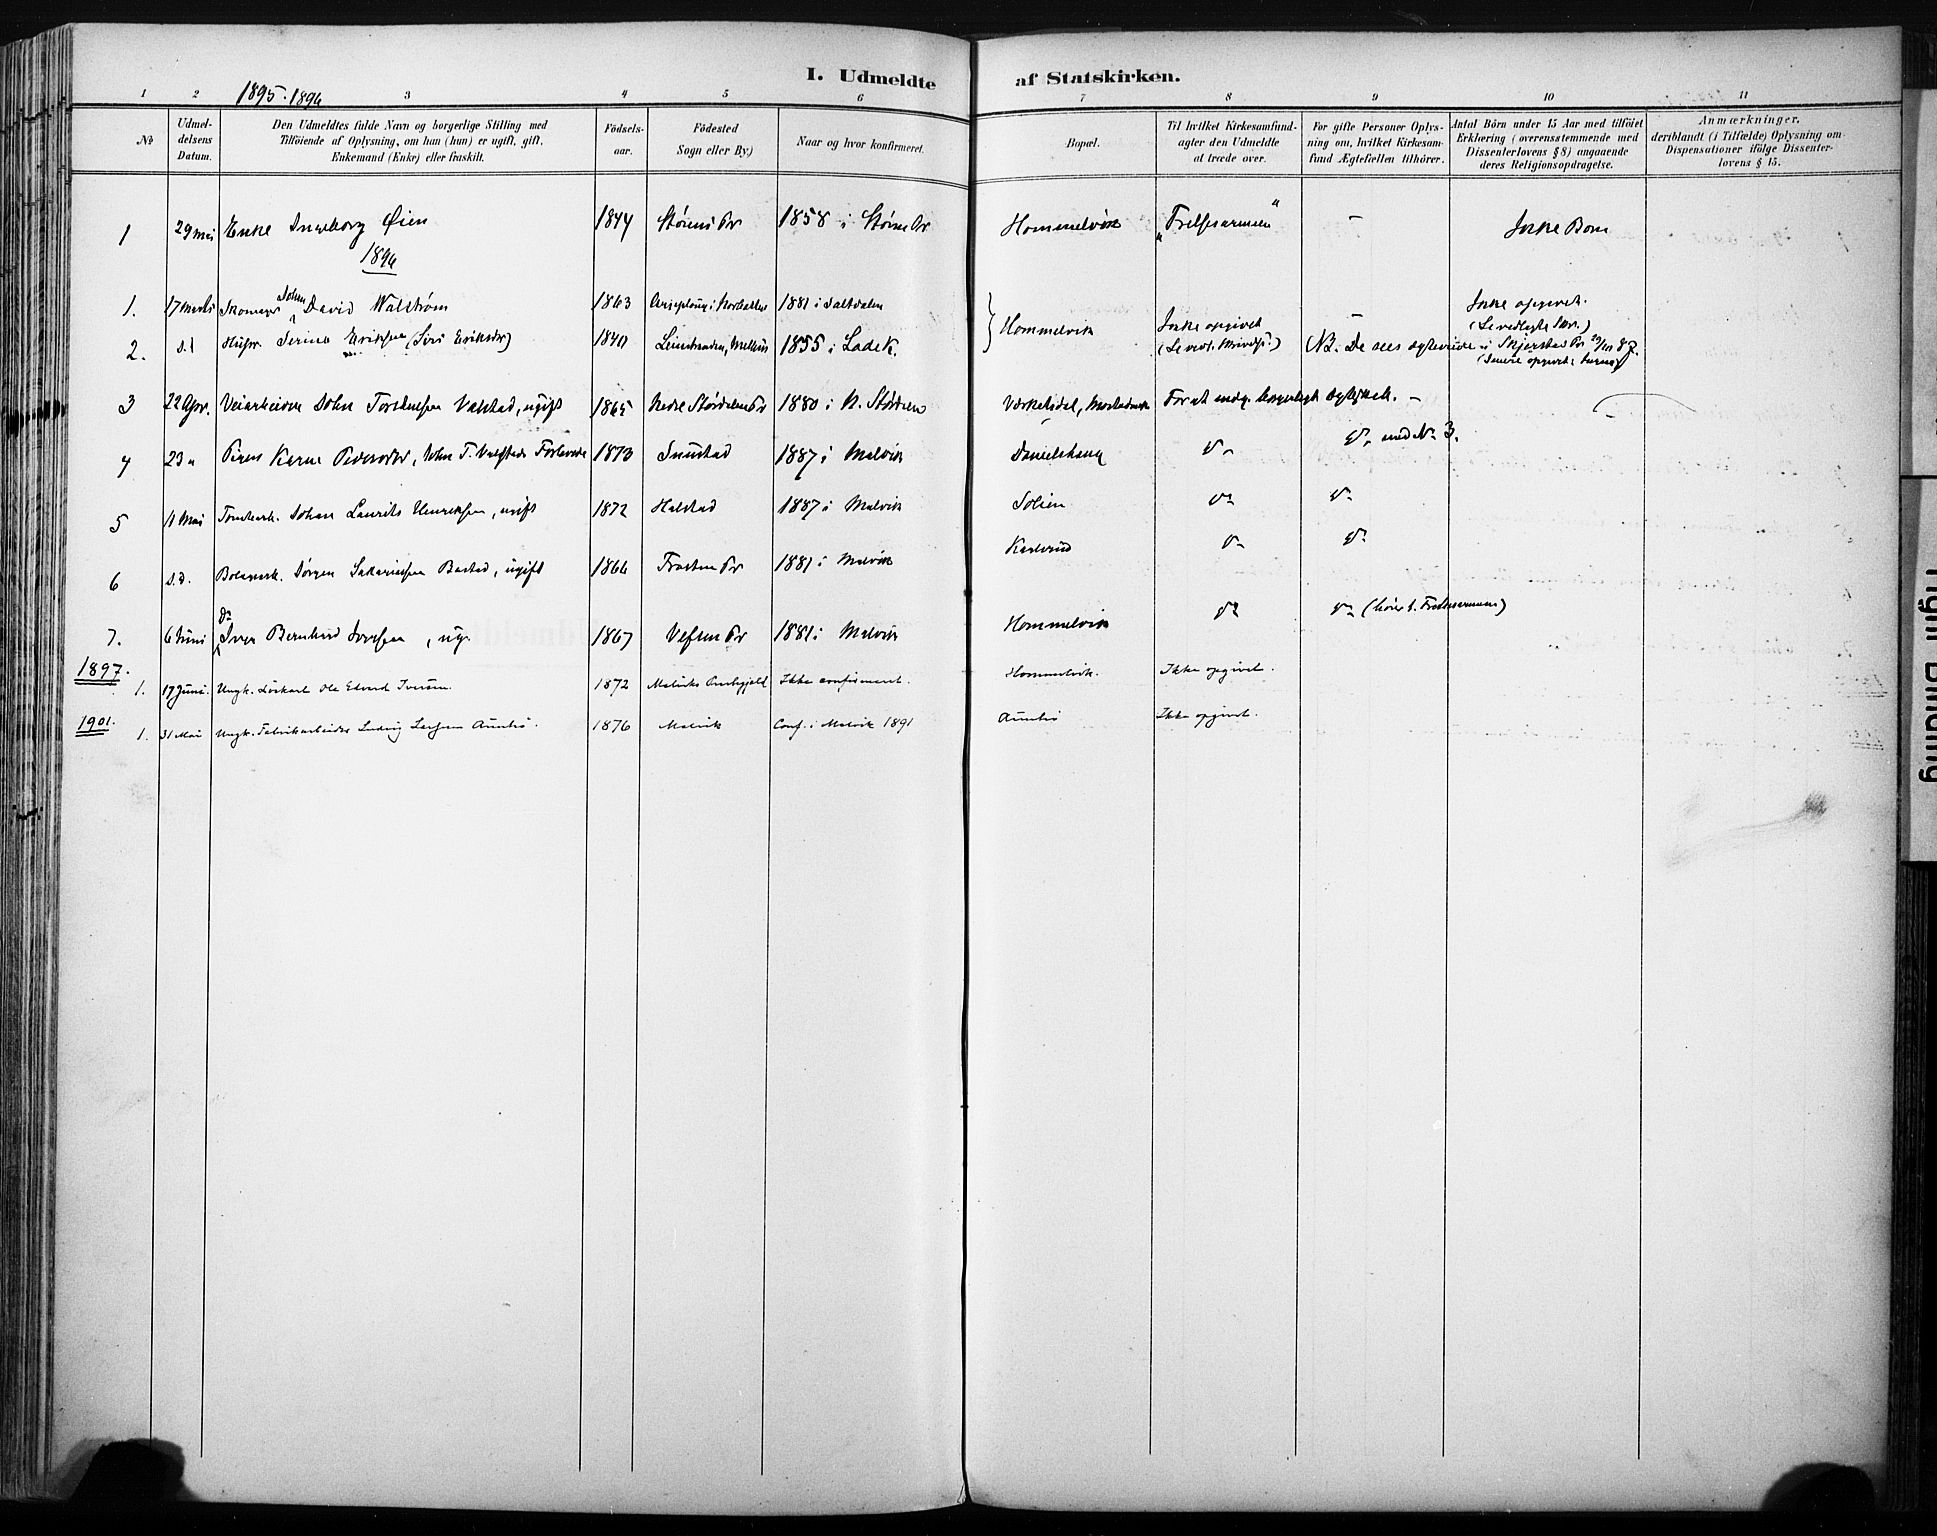 I. Udmeldte af Statskirken.
1895-1896
1 2 3 4 5 6 7 8 9 10 11
№
Udmeldelsens Datum.
Den Udmeldtes fulde Navn og borgerlige Stilling med
Tilföiende af Oplysning, om han (hun) er ugift, gift,
Enkemand (Enke) eller fraskilt.
Födselsaar.
Födested
Sogn eller By.)
Naar og hvor konfirmeret.
Bopæl.
Til hvilket Kirkesamfund
agter den Udmeldte
at træde over.
For gifte Personer Oplysning om, hvilket Kirkesamfund Ægtefællen tilhörer.
Antal Börn under 15 Aar med tilföiet
Erklæring (overensstemmende med
Dissenterlovens § 8) angaaende
deres Religionsopdragelse.
Anmærkninger,
deriblandt (i Tilfælde) Oplysning om
Dispensationer ifölge Dissenterlovens § 15.
1 29 mai Enke Ingeborg Øien 1844 Størens Pr 1858 i Støren Pr Hommelvik "Frelsesarmeen" - Ikke Børn
1896
1. 17 Marts Skomager Johan David Walstrøm 1863 1881 i Saltdalen Hommelvik Ikke opgivet - Ikke opgivet.
2. s.d Husfr. Serine Eriksen (Siri Eriksdr) 1840 Leinstranden, Melhus 1855 i Lade K. (NB. De ere ægteviede i Skjerstad Pr
3 22 Apr. Veiarbeider John Valstad, ugift 1865 Nedre Stördalen Pr 1880 i N. Stördalen For at indg. borgerligt Ægteskab. -
4 23 " Pigen Karen Pedersdtr, John T. Valstads Forlovede 1873 1887 i Malvik Danielshaug do do med No 3.
5 11 Mai Johan Laurits Henriksen, ugift 1872 Halstad 1887 i Malvik Solien do do
6 s.d. Jørgen Sakariasen Bastad, ugift 1866 Frosten Pr 1881 i Malvik Karlsrud do do
7. 6 Juni do Bernhard , ug. 1867 Vefsen Pr 1881 i Malvik Hommelvik do do (hører t. Frelsesarmeen)
1897.
1. 17 Juni. Ungk. Ole Edvard Iversen. 1872 Malviks Ikke confirmeret. Hommelvik. Ikke opgivet.
1901.
1. 31 Mai Ungk. Fabrikarbeider Ludvig Larsen 1876 Malvik Conf. i Malvik 1891 Ikke opgivet.